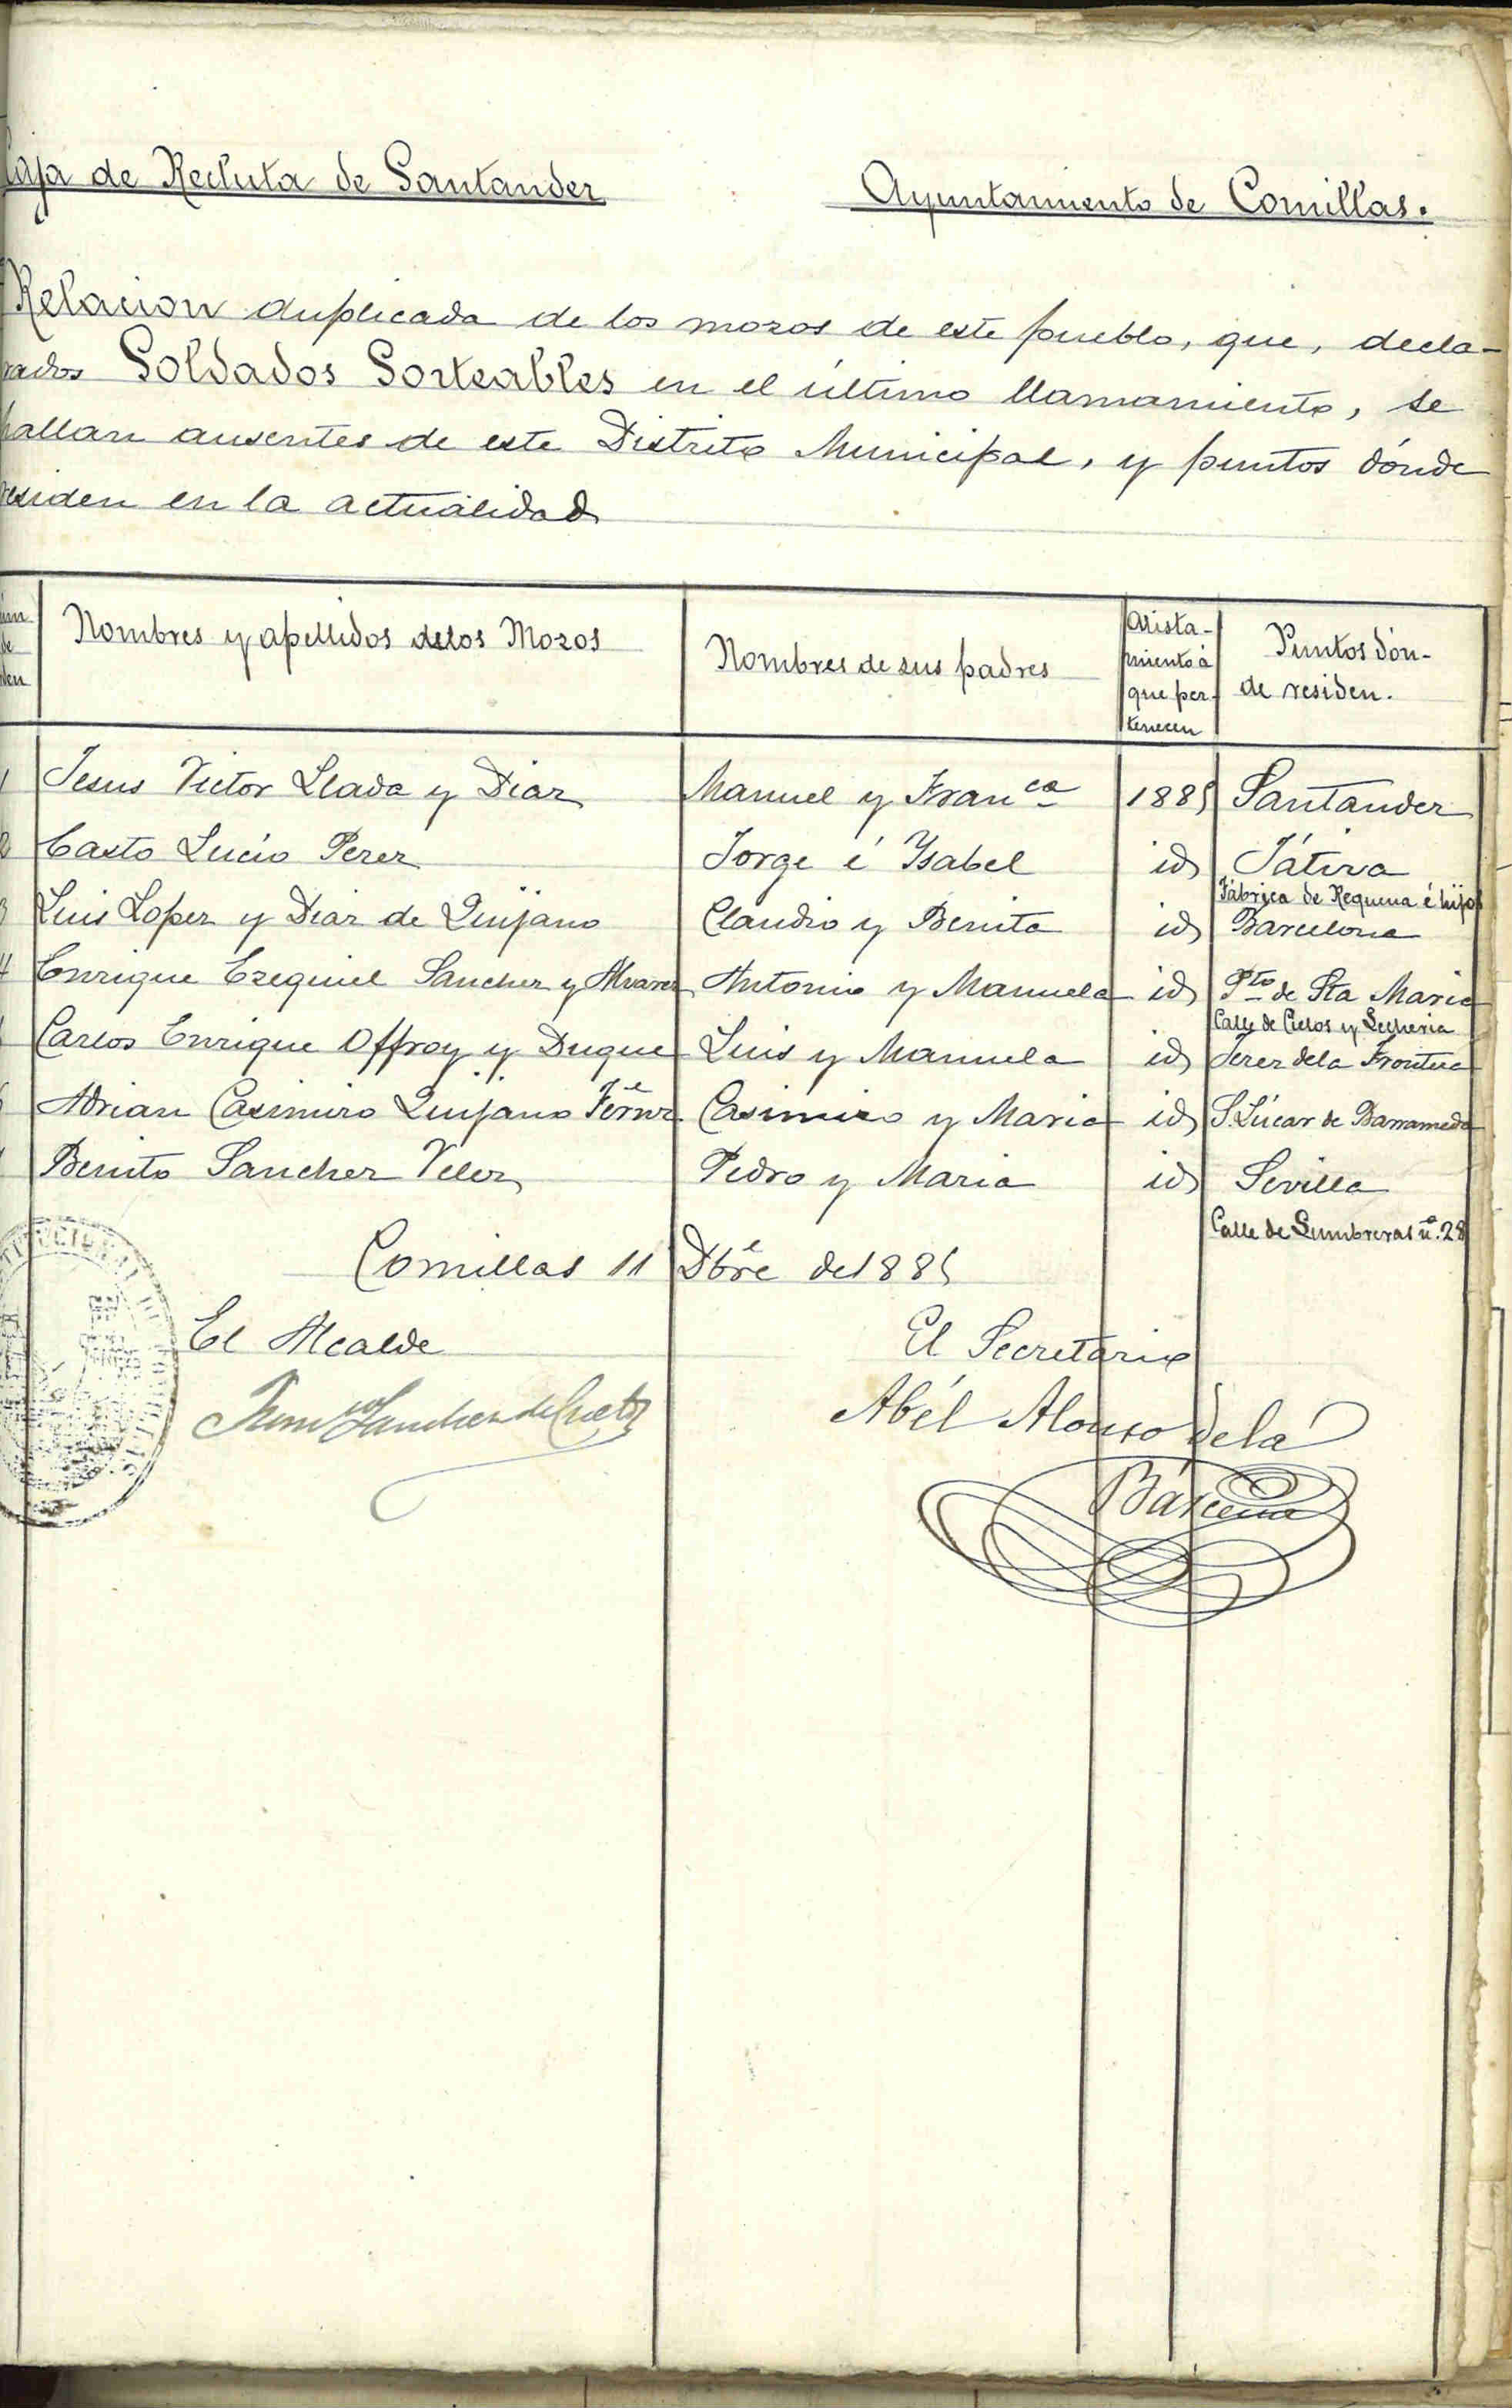 Caja de Recluta de Santander
Ayuntamiento de Comillas.
Relacion duplicada de los mozos de este pueblo, que, decla-
rados Soldados Sorteables en el último llamamiento, se
hallan ausentes de este Distrito Municipal, y puntos dónde
residen en la actualidad
Núm de órden
Nombres y apellidos de los Mozos
Nombres de sus padres
Alista-
miento à
que per-
tenecen
Puntos dón-
de residen.
1 Jesus Victor Llada y Diaz Manuel y Franca 1885 Santander
2 Casto Lucio Perez Jorge é Ysabel id Játiva
Fábrica de Requena é hijos
3 Luis Lopez y Diaz de Quijano Claudio y Benita id Barcelona
4 Enrique Ezequiel Sanchez y Alvarez Antonio y Manuela id Pto de Sta Maria
Calle de Cielos y Lecheria
Carlos Enrique Offroy y Duque Luis y Manuela id Jerez de la Frontera
Adrian Casimiro Quijano Fernz Casimiro y Maria id S. Lúcar de Barrameda
Benito Sanchez Velez Pedro y Maria id Sevilla
Calle de Lumbreras nº. 28
Comillas 11 Dbre de 1885
El Alcalde
El Secretario
Sanchez de Cueto
Abél Alonso de la
Bárcena